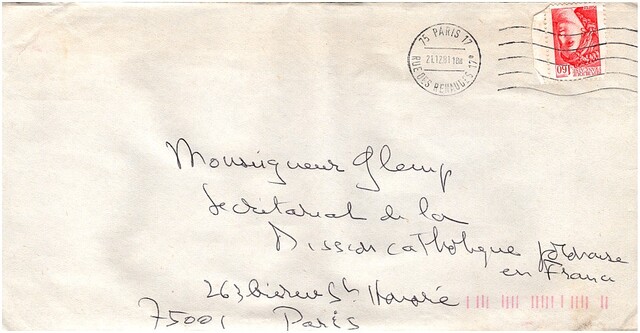 75 PARIS 17
21.12.81 10H
RUE DES RENAUDES 17e
1,60
Monseigneur Glemp
Secrétariat de la
Mission catholique polonaise
en France
263 bis rue St Honoré
75001 Paris